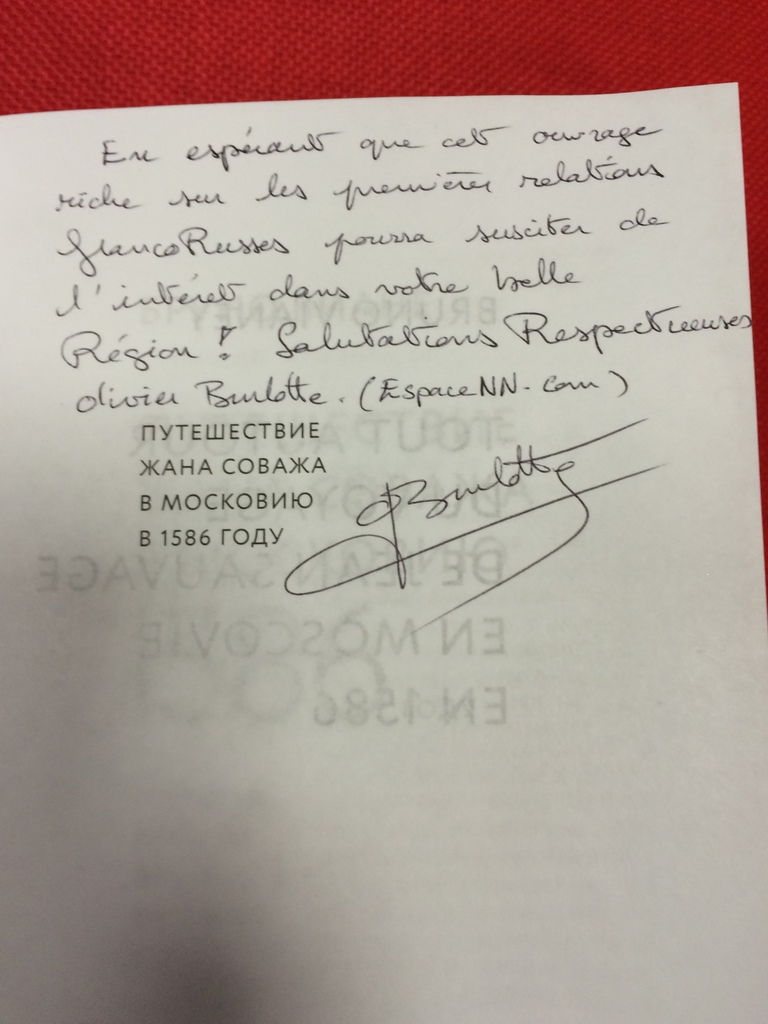 En espérant que cet ouvrage
riche sur les premières relations
FrancoRusses pourra susciter de
l'intérêt dans votre belle
Région. Salutations Respectueuses
Olivier Burlotte. (EspaceNN.com)
ПУТЕШЕСТВИЕ
ЖАНА СОВАЖА
В МОСКОВИЮ
В 1586 ГОДУ
OBurlotte